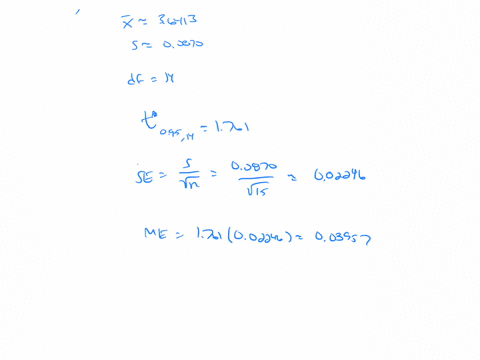 x̄ ≈ 3.6113
s ≈ 0.0870
df = 14
t*0.95,14 = 1.761
SE = s/√n = 0.0870/√15 = 0.02246
ME = 1.761(0.02246) = 0.03957